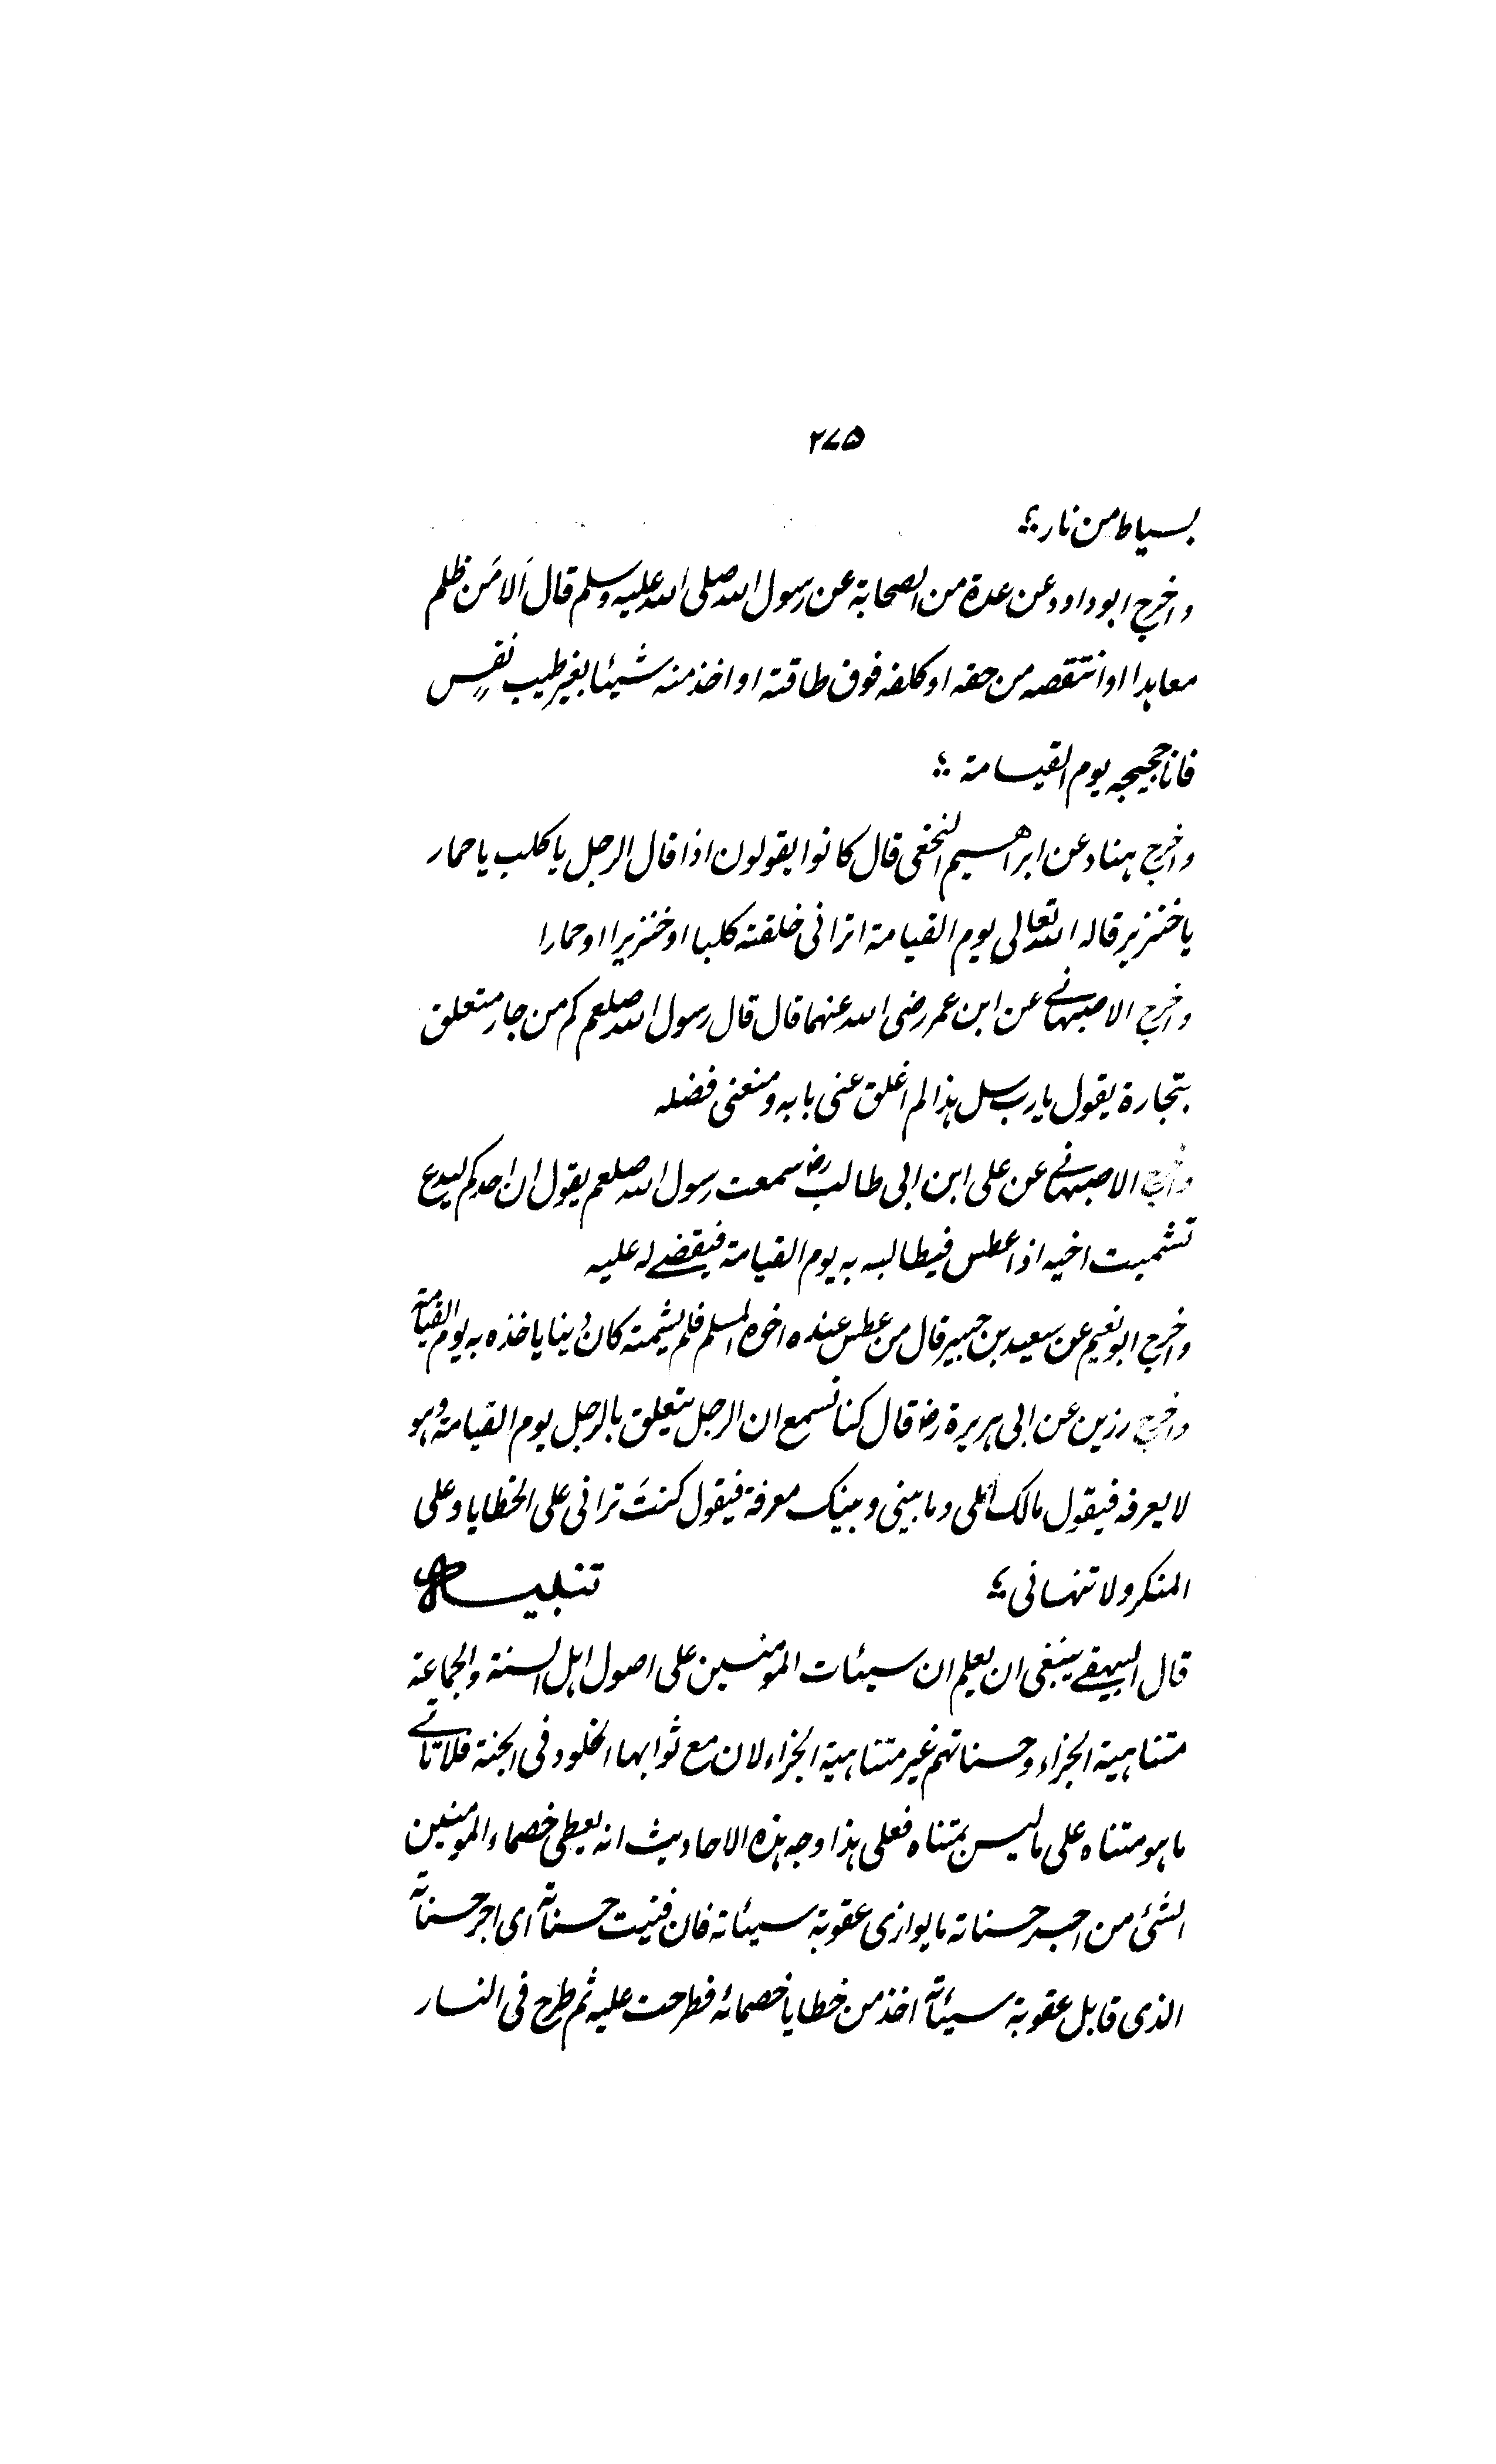 ۲۷۵
بسیاط من نار ؛
واخرج ابو داود عن عدة من الصحابة عن رسول الله صلی الله علیہ وسلم قال اَلا مَن ظلم
معاہدا او انتقصہ من حقہ او کلفہ فوق طاقتہ او اخذ منہ شیئا بغیر طیب نفسٍ
فانا حجیجہ یوم القیامة ؛
واخرج ہناد عن ابراھیم النخعی قال کانوا یقولون اذا قال الرجل یا کلب یا حمار
یا خنزیر قال لہ اللہ تعالی یوم القیامة اترانی خلقتہ کلبا او خنزیرا او حمارا
واخرج الاصبہانے عن ابن عمر رضی اللہ عنہما قال قال رسول اللہ صلعم کم من جار متعلق
بتجارة یقول یا رب سل ہذا لم اغلق عنی بابہ و منعنی فضلہ
واخرج الاصبہانے عن علی ابن ابی طالب رض سمعت رسول اللہ صلعم یقول ان احدکم لیدع
تشمیت اخیہ اذا عطس فیطالبہ بہ یوم القیامة فیقضے لہ علیہ
واخرج ابو نعیم عن سعید بن جبیر قال من عطس عندہ اخوہ المسلم فلم یشمتہ کان دُینا یاخذہ بہ یوم القیامة
واخرج رزین عن ابی ہریرة رض قال کنا نسمع ان الرجل یتعلق بالرجل یوم القیامة وہو
لا یعرفہ فیقول مالک اِلی وما بینی و بینک معرفة فیقول کنتَ ترانی علی الخطایا وعلی
المنکر ولا تنہانی ؛ تنبیہ
قال البیہقے ینبغی ان یعلم ان سیئات المومنین علی اصول اہل السنة والجماعة
متناہیة الجزاء وحسناتہم غیر متناہیة الجزاء لان مع ثوابہا الخلود فی الجنة فلا تاتے
ما ہو متناہ علی ما لیس بمتناہ فعلی ہذا وجہ ہذہ الاحادیث انہ یعطی خصماء المومنین
الشئ من اجر حسناتہ ما یوازی عقوبة سیئاتہ فان فنیت حسناتہ ای اجر حسناتہ
الذی قابل عقوبة سیئاتہ اخذ من خطایا خصمائہ فطرحت علیہ ثم طرح فی النار